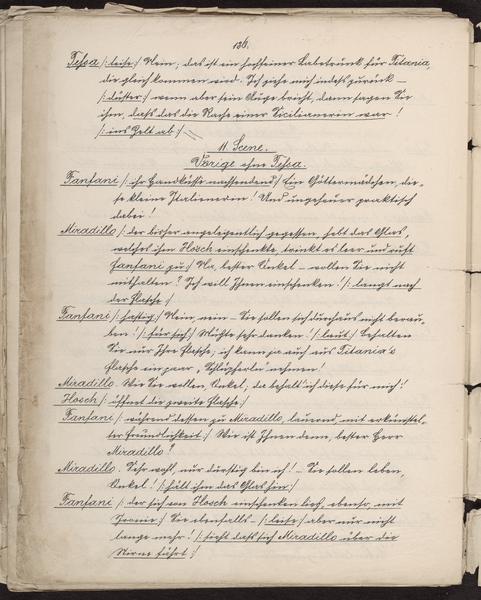 136.
Tessa /: leise :/ Nein; das ist ein hochfeiner Labetrunk für Titania,
die gleich kommen wird. Ich ziehe mich indeß zurück —
/: düster :/ wenn aber sein Auge bricht, dann sagen Sie
ihm, daß das die Rache einer Sicilianerin war!
/: ins Zelt ab :/
11. Scene.
Vorige ohne Tessa.
Fanfani /: ihr Handküsse nachsendend :/ Ein Göttermädchen, die-
se kleine Italienerin! Und ungeheuer praktisch
dabei!
Miradillo /: der bisher angelegentlich gegessen, hebt das Glas,
welches ihm Hosch einschenkte, trinkt es leer und ruft
Fanfani zu :/ Na, bester Onkel — wollen Sie nicht
mithalten? Ich will Ihnen einschenken! /: langt nach
der Flasche :/
Fanfani /: hastig :/ Nein, nein — Sie sollen sich durchaus nicht berau-
ben! /: für sich :/ Müßte sehr danken! /: laut :/ Behalten
Sie nur Ihre Flasche; ich kann ja auch aus Titania's
Flasche ein paar „Schlückerln" nehmen!
Miradillo. Wie Sie wollen, Onkel, da behalt' ich diese für mich!
Hosch /: öffnet die zweite Flasche :/
Fanfani /: während dessen zu Miradillo, lauernd, mit erkünstel-
ter Freundlichkeit :/ Wie ist Ihnen denn, bester Herr
Miradillo?
Miradillo. Sehr wohl, nur durstig bin ich! — Sie sollen leben,
Onkel! /: hält ihm das Glas hin :/
Fanfani /: der sich von Hosch einschenken ließ, ebenso, mit
Ironie :/ Sie ebenfalls — /: leise :/ aber nur nicht
lange mehr! /: sieht daß sich Miradillo über die
Stirne fährt :/